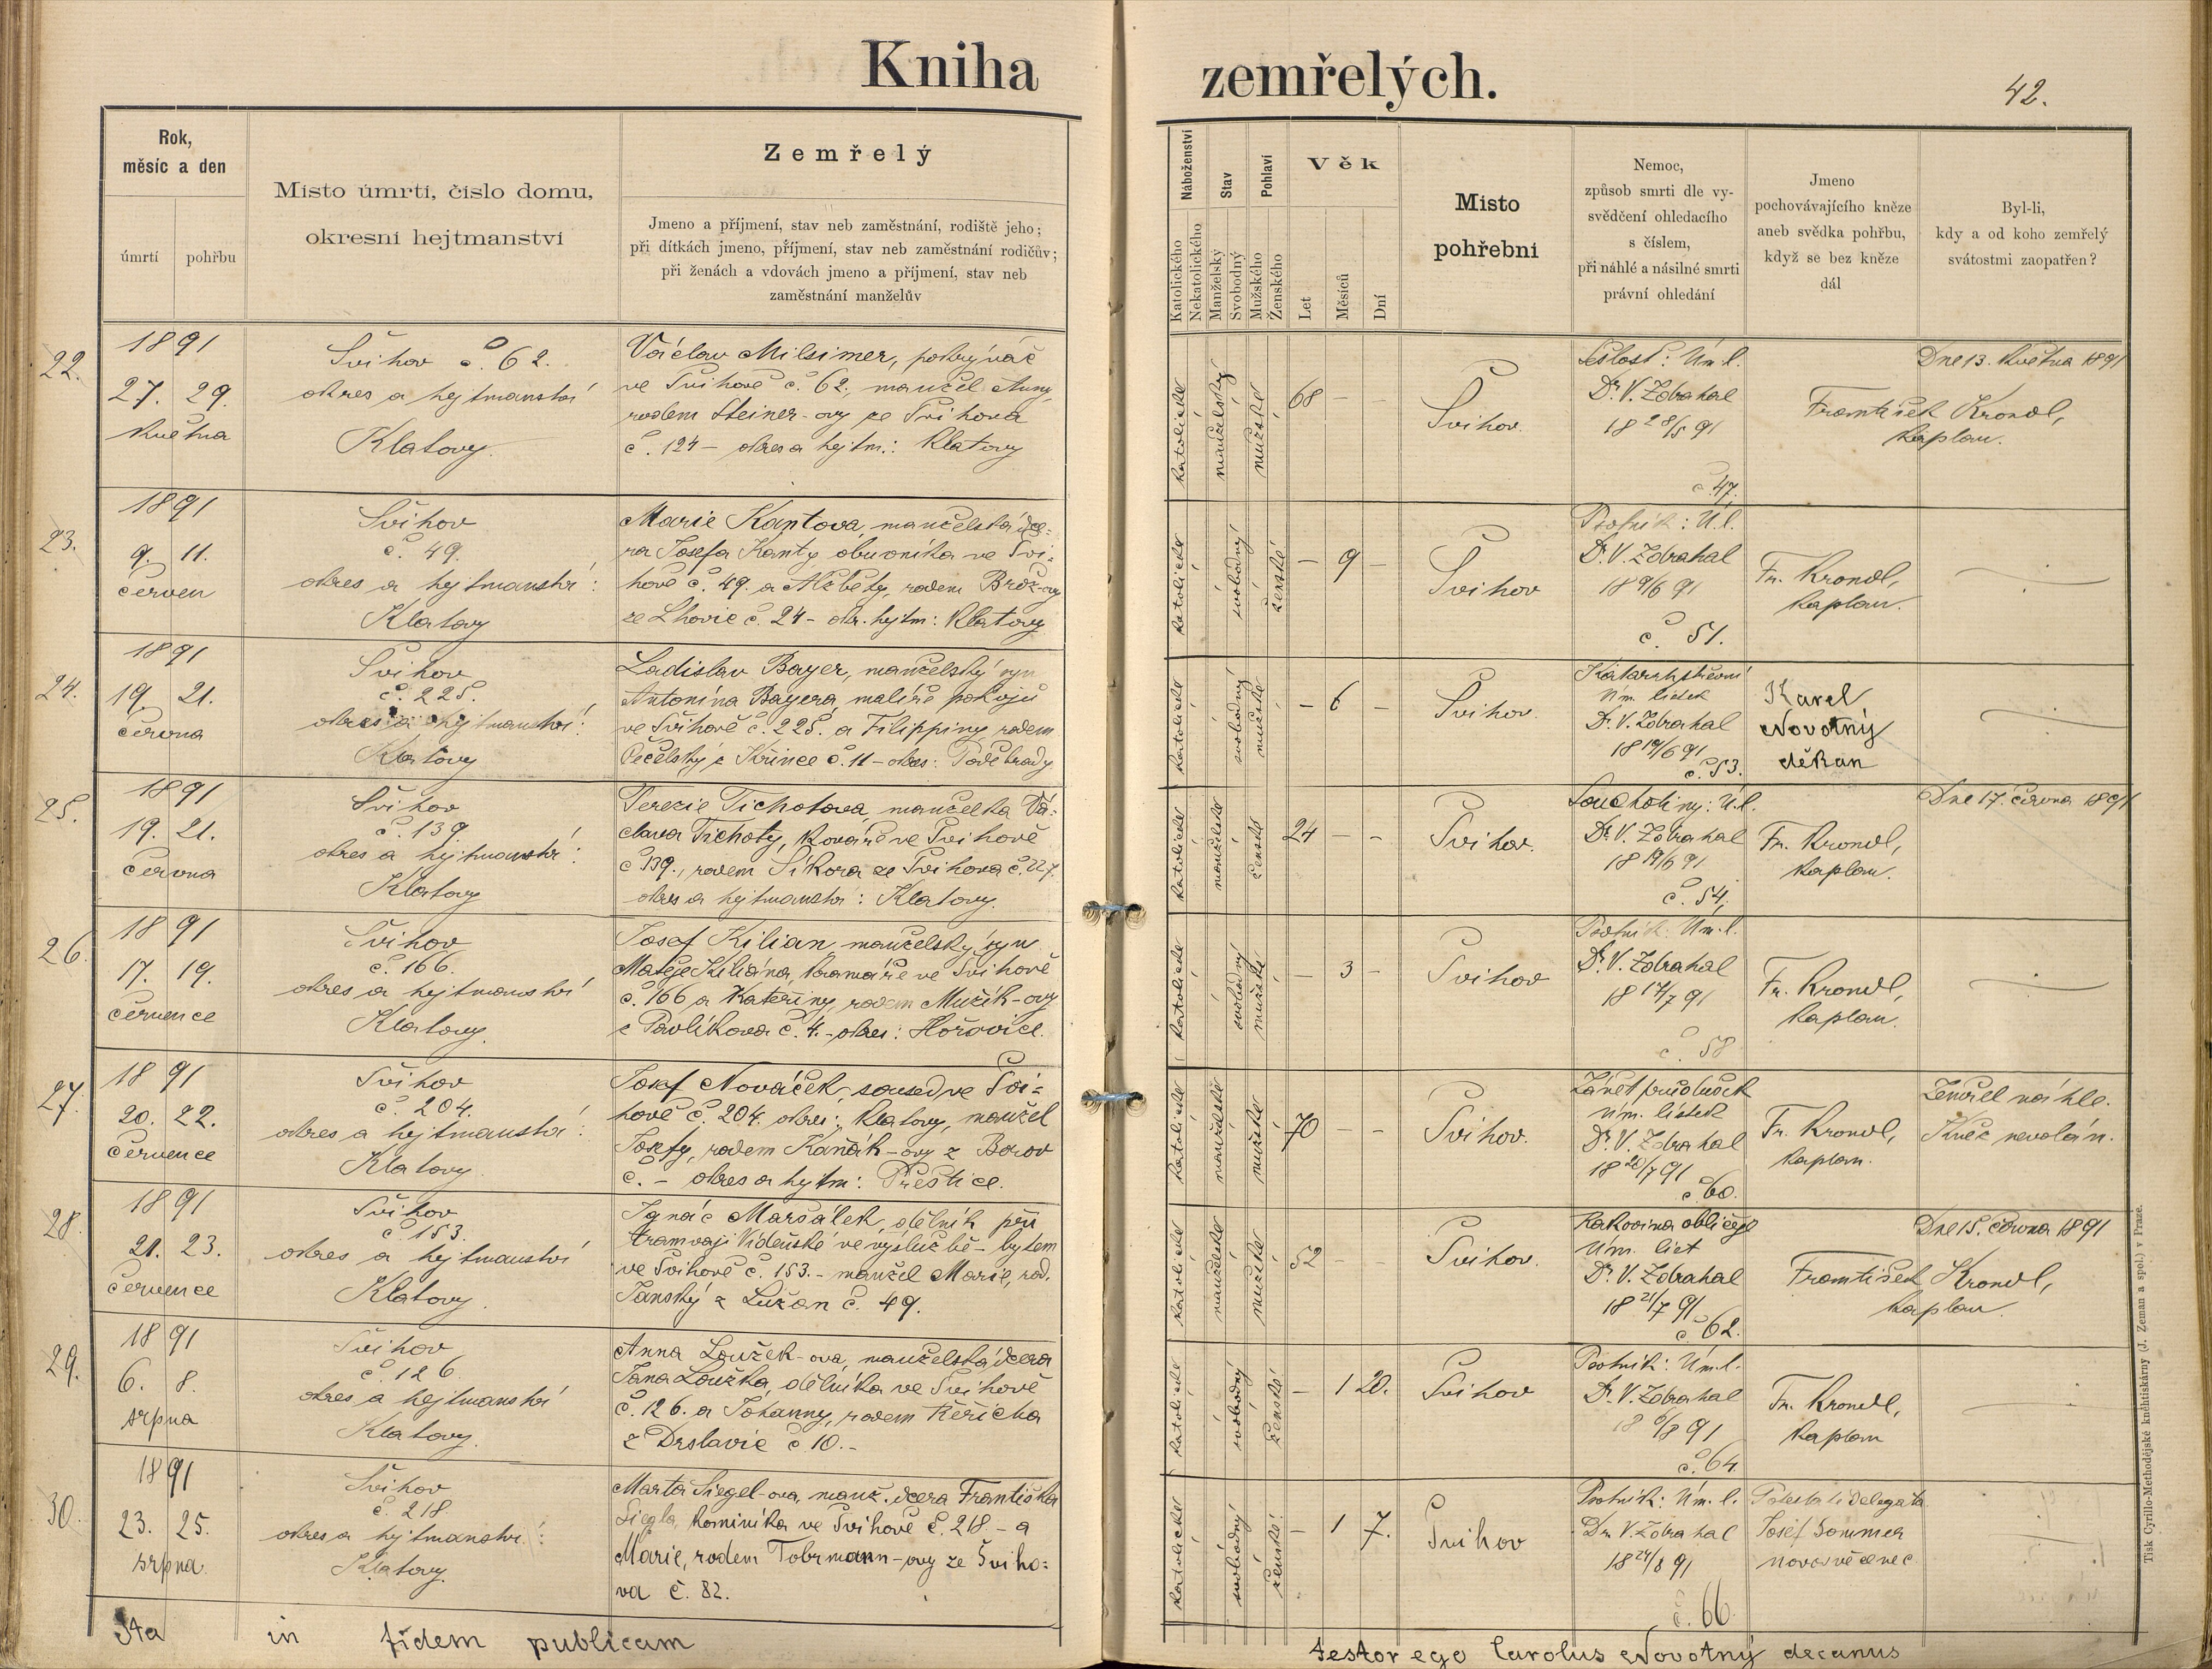 Kniha zemřelých.
42.
Rok,
měsíc a den
úmrtí
pohřbu
Místo úmrtí, číslo domu,
okresní hejtmanství
Zemřelý
Jmeno a příjmení, stav neb zaměstnání, rodiště jeho;
při dítkách jmeno, příjmení, stav neb zaměstnání rodičův;
při ženách a vdovách jmeno a příjmení, stav neb
zaměstnání manželův
Náboženství
Katolického
Nekatolického
Stav
Manželský
Svobodný
Pohlaví
Mužského
Ženského
Věk
Let
Měsíců
Dní
Místo
pohřební
Nemoc,
způsob smrti dle vy-
svědčení ohledacího
s číslem,
při náhlé a násilné smrti
právní ohledání
Jmeno
pochovávajícího kněze
aneb svědka pohřbu,
když se bez kněze
dál
Byl-li,
kdy a od koho zemřelý
svátostmi zaopatřen?
22.
1891
27. 29.
Května
Švihov č. 62.
okres a hejtmanství
Klatovy.
Václav Milsimer, pokrývač
ve Švihově č. 62., manžel Anny,
rodem Steiner-ovy ze Švihova
č. 124 – okres a hejtm.: Klatovy
katolické
manželský
mužské
68 – –
Švihov.
Sešlost: Úm. l.
Dr. V. Zdrahal
18 28/5 91
č. 47.
Dne 13. Května 1891
František Krondl,
kaplan.
23.
1891
9. 11.
červen
Švihov
č. 49.
okres a hejtmanství:
Klatovy
Marie Kantova, manželská dce-
ra Josefa Kanty obuvníka ve Švi-
hově č. 49. a Alžběty, rodem Brož-ovy
ze Lhovic č. 24 – okr. hejtm: Klatovy
katolické
svobodný
ženské
– 9 –
Švihov
Psotník: Ú. l.
Dr. V. Zdrahal
18 9/6 91
č. 51.
Fr. Krondl,
kaplan.
24.
1891
19. 21.
června
Švihov
č. 225.
okres a hejtmanství:
Klatovy
Ladislav Bayer, manželský syn
Antonína Bayera, malíře pokojů
ve Švihově č. 225. a Filippiny, rodem
Pečelský z Křince č. 11 – okres: Poděbrady
katolické
svobodný
mužské
– 6 –
Švihov.
Katarrh střevní
Úm. lístek
Dr. V. Zdrahal
18 19/6 91
č. 53.
Karel
Novotný
děkan
25.
1891
19. 21.
června
Švihov
č. 139
okres a hejtmanství:
Klatovy
Terezie Tichotova, manželka Vá-
clava Tichoty, kováře ve Švihově
č 139., rodem Síkora ze Švihova
okres a hejtmanství: Klatovy.
katolické
manželské
ženské
24 – –
Švihov.
Souchotiny: Ú. l.
Dr. V. Zdrahal
18 19/6 91
č. 54.
Fr. Krondl,
kaplan.
Dne 17. června 1891
26.
1891
17. 19.
července
Švihov
č. 166.
okres a hejtmanství
Klatovy.
Josef Kilian, manželský syn
Matěje Kiliána, kramáře ve Švihově
č. 166 a Kateřiny, rodem Mužík-ovy
z Pavlíkova č. 4. – okres: Hořovice.
katolické
svobodný
mužské
– 3 –
Švihov
Psotník: Úm. l.
Dr. V. Zdrahal
18 17/7 91
č. 58
Fr. Krondl,
kaplan.
27.
1891
20. 22.
července
Švihov
č. 204.
okres a hejtmanství:
Klatovy.
Josef Nováček, soused ve Švi-
hově č. 204. okres: Klatovy, manžel
Josefy, rodem Kaňák-ovy z Borov
č. – okres a hejtm: Přeštice.
katolické
manželské
mužské
70 – –
Švihov.
Zánět průdušek
Úm. lístek
Dr. V. Zdrahal
18 20/7 91
č. 60.
Fr. Krondl,
kaplan.
Zemřel náhle.
Kněz nevolán.
28.
1891
21. 23.
července
Švihov
č 153.
okres a hejtmanství
Klatovy.
Ignác Maršálek, dělník při
tramvaji Vídeňské ve výslužbě – bytem
ve Švihově č. 153. – manžel Marie, rod.
Janský z Lužan č. 49.
katolické
manželské
mužské
52 – –
Švihov.
Rakovina obličeje
Úm. list
Dr. V. Zdrahal
18 21/7 91
č. 62.
Dne 15. června 1891
František Krondl,
kaplan.
29.
1891
6. 8.
srpna
Švihov
č. 126.
okres a hejtmanství
Klatovy.
Anna Loužek-ova, manželská dcera
Jana Loužka, dělníka ve Švihově
č. 126. a Johanny, rodem Řeřicha
z Drslavic č 10. –
katolické
svobodný
ženské
– 1 20.
Švihov
Psotník: Úm. l.
Dr. V. Zdrahal
18 6/8 91
č. 64.
Fr. Krondl,
kaplan
30.
1891
23. 25.
srpna.
Švihov
č. 218
okres a hejtmanství:
Klatovy.
Marta Siegel-ova, manž. dcera Františka
Siegla, kominíka ve Švihově č. 218 – a
Marie, rodem Tobrmann-ovy ze Šviho-
va č. 82.
katolické
svobodný
ženské
– 1 7.
Švihov
Psotník: Úm. l.
Dr. V. Zdrahal
18 24/8 91
č. 66.
Potestate delegata
Josef Sommer
novosvěcenec
Ita in fidem publicam testor ego Carolus Novotný decanus
Tisk Cyrillo-Methodějské kněhtiskárny (J. Zeman a spol.) v Praze.